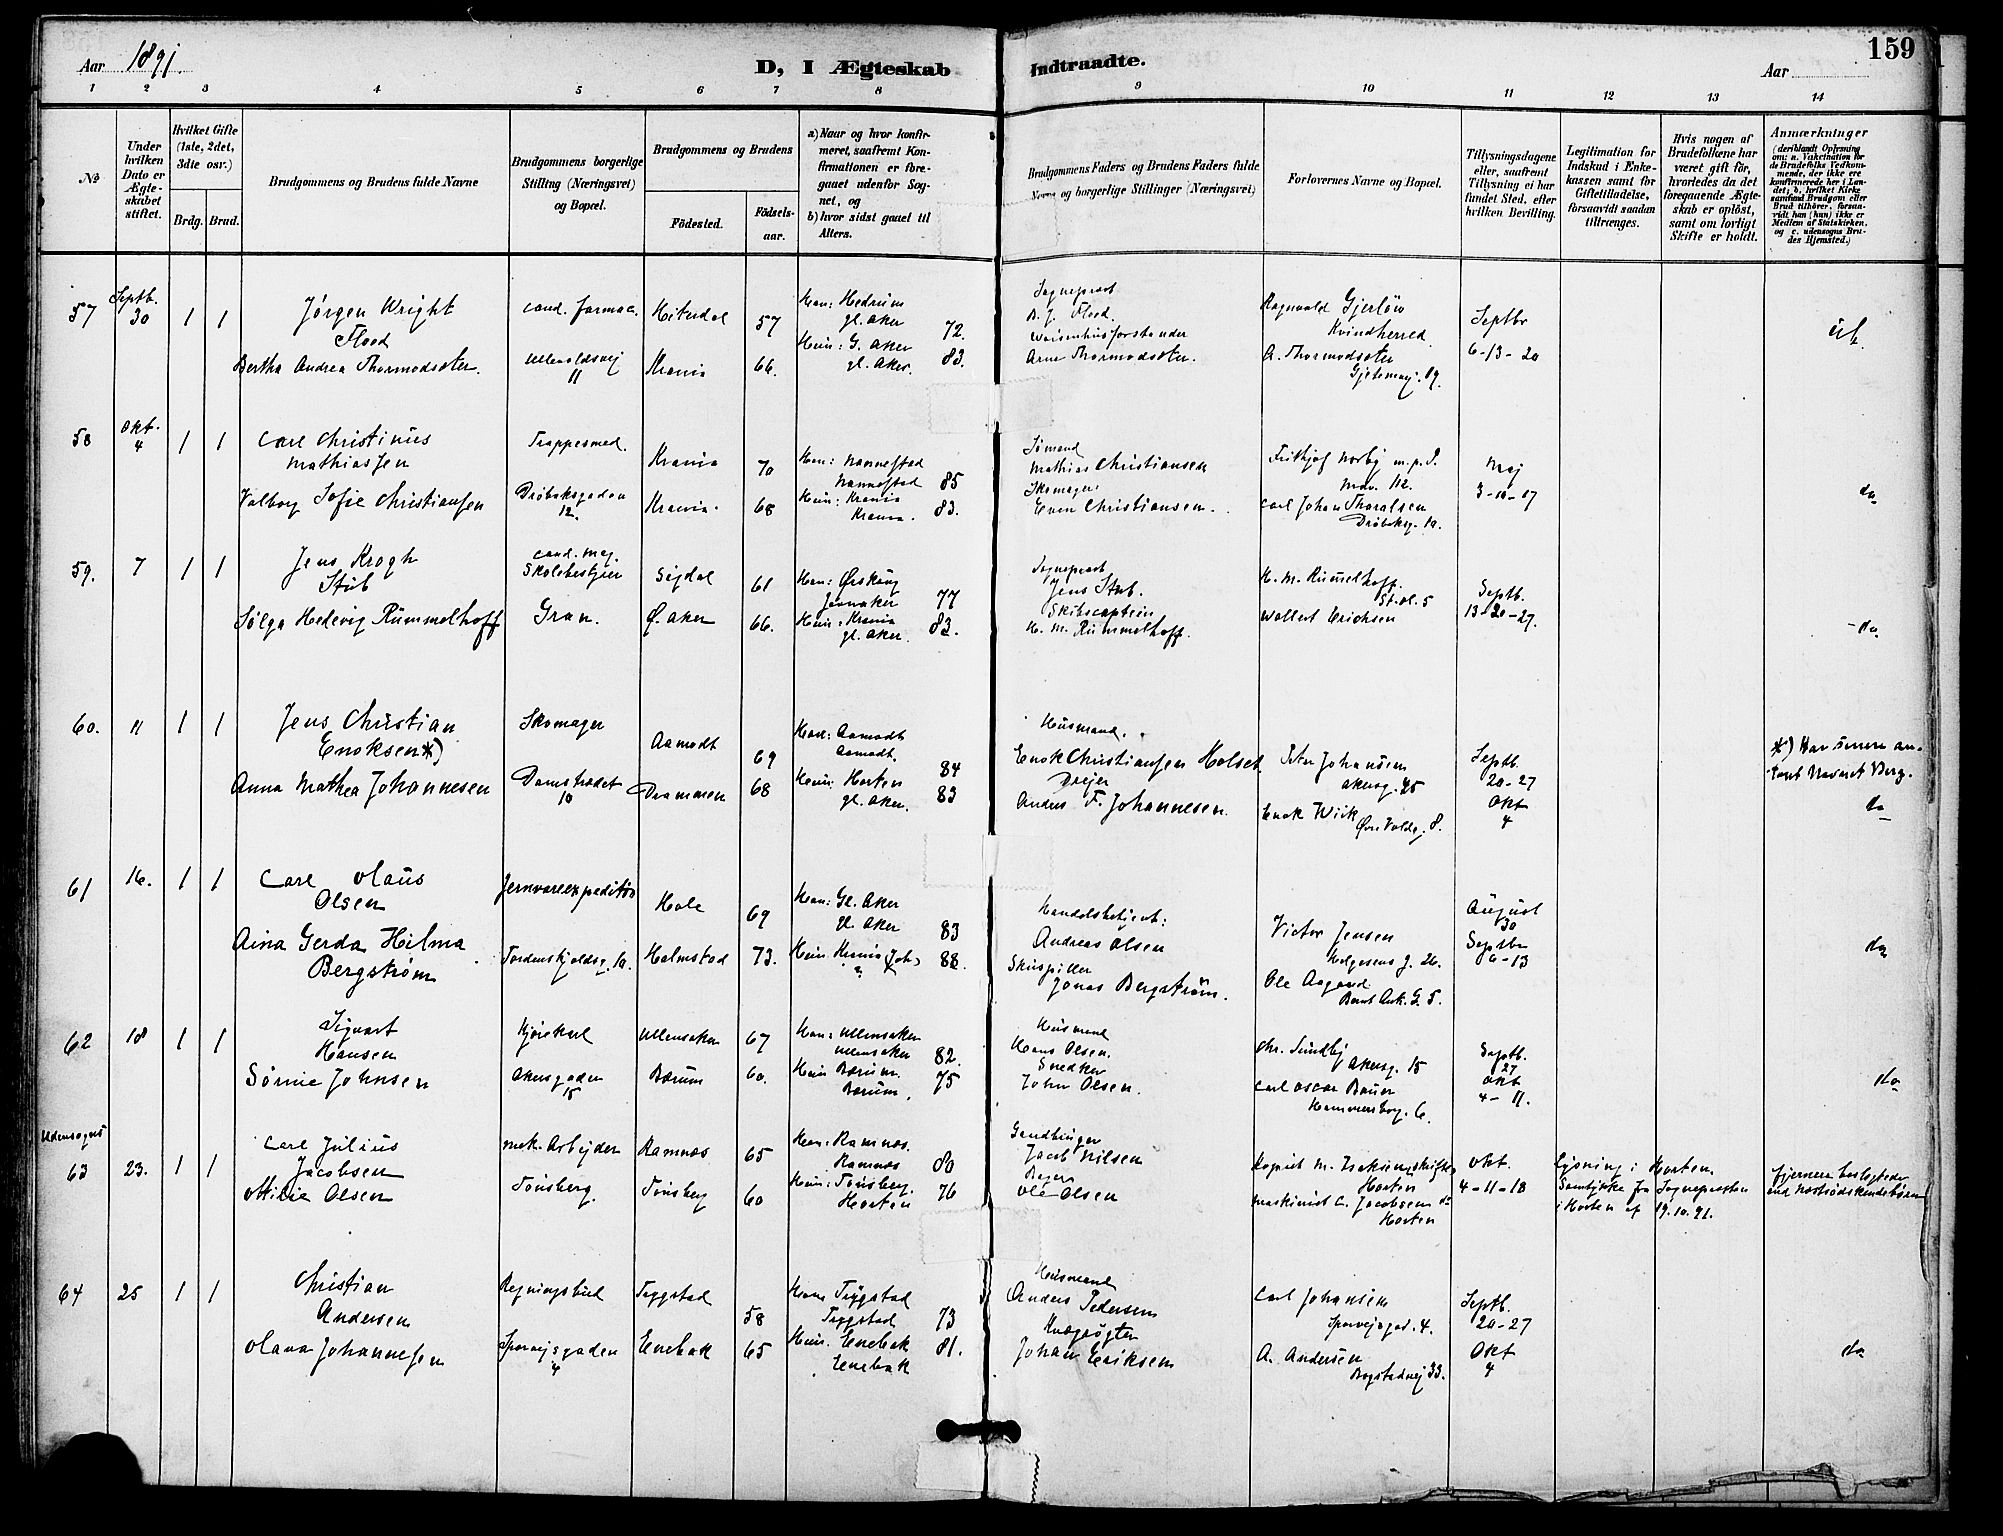 Aar 1891.
D, I Ægteskab Indtraadte.
Aar
159
1 2 3 4 5 6 7 8 9 10 11 12 13 14
No
Under hvilken Dato er Ægteskabet stiftet.
Hvilket Gifte (1ste, 2det, 3dte osv.)
Brdg. Brud.
Brudgommens og Brudens fulde Navne
Brudgommens borgerlige Stilling (Næringsvei) og Bopæl.
Brudgommens og Brudens
Födested. Födselsaar.
a) Naar og hvor konfirmeret, saafremt Konfirmationen er foregaaet udenfor Sognet, og
b) hvor sidst gaaet til Alters.
Brudgommens Faders og Brudens Faders fulde Navne og borgerlige Stillinger (Næringsvei)
Forlovernes Navne og Bopæl.
Tillysningsdagene eller, saafremt Tillysning ei har fundet Sted, efter hvilken Bevilling.
Legitimation for Indskud i Enkekassen samt for Giftetilladelse, forsaavidt saadan tiltrænges.
Hvis nogen af Brudefolkene har været giftför, hvorledes da det foregaaende Ægteskab er oplöst, samt om lovligt Skifte er holdt.
Anmærkninger (deriblandt Oplysning om: a. Vakcination for de Brudefolks Vedkommende, der ikke ere konfirmerede her i Landet; b. hvilket Kirkesamfund Brudgom eller Brud tilhörer, forsaavidt han (hun) ikke er Medlem af Statskirken, og c. udensogns Brudes Hjemsted.)
57 Septb. 30 1 1
Jørgen Wright Flood
cand. farmac. Hiterdal 57
Han: Hedrum
gl. Aker 72.
Sogneprest
B. J. Flood.
Ragnvald Gjerløw
Kvindherred.
Septbr
6-13-20
Bertha Andrea Thormodsæter.
Ullevoldsvej 11 Krania 66.
Hun: G. Aker 83.
gl. Aker.
Waisenhusforstander
Arne Thormodsæter.
A. Thormodsæter
58 Okt. 4 1 1
Carl Christinus Mathiassen
Trappesmed. Krania 70
Han: Nannestad
Nannestad 85
Sømand
Mathias Christiansen
Frithjof Norby m.p.J.
Mav. 112.
Maj
3-10-17
do
Valborg Sofie Christiansen
Drøbaksgaden 12. Krania. 68
Hun: Krania
Krania. 83.
Skomager
Even Christiansen.
Carl Johan Thoralsen
Drøbaksg. 12.
59. 7 1 1
Jens Krogh Stub
cand. mag. Skolebestyrer Sigdal 61
Han: Ørskoug
Jevnaker 77
Sogneprest
Jens Stub.
H. M. Rummelhoff.
St. ol. 5
Septb.
13-20-27.
Sølga Hedevig Rummelhoff
Gran. Ø. Aker 66.
Hun: Krania
gl. Aker. 82.
Skibscaptein
H. M. Rummelhoff.
Wollert Erichsen
do
60. 11 1 1
Jens Christian Enoksen *)
Skomager Aamodt 69
Han: Aamodt
Aamodt. 84
Husmand.
Enok Christiansen Holset
Peter Johansen
Akersg. 25
Septb.
20-27
Okt
4
*) Har senere antaet Navnet Berg.
do
Anna Mathea Johannesen
Damstrædet 10 Drammen 68
Hun: Horten
gl. Aker. 83
Drejer
Anders F. Johannesen.
Enok Wiik
Øvre Voldg. 8.
61 16. 1 1
Carl Olaus Olsen
Jernvareexpeditør Hole 69
Han: Gl. Aker
Gl. Aker 83
Handelsbetjent:
Andreas Olsen
Victor Jensen
Helgesens g. 26.
August
30
Septbr
6-13
do
Aina Gerda Hilma Bergstrøm
Tordenskjoldsg. 10. Halmstad 73.
Hun Krania (Joh.)
" 88.
Skuspiller
Jonas Bergstrøm.
Ole Aagaard
Bernt Ank. G. 5.
62 18 1 1
Sigvart Hansen
Kjørekarl Ullensaker 67
Han: Ullensaker
Ullensaker 82.
Husmand
Hans Olsen.
Chr. Sundby
Akersg. 15
Septb.
27
Okt
4-11.
do
Sørine Johnsen
Akersgaden 15 Bærum 60.
Hun Bærum.
Bærum. 75
Snedker
John Olsen.
Carl Oscar Bauer
Hammersborg. 6.
Udensogns
63 23. 1 1
Carl Julius Jacobsen
mek. Arbejder Ramnæs 65
Han: Ramnæs.
Ramnæs 80
Gaardbruger
Jacob Nilsen
Horten
Okt.
4-11-18
Lysning i Horten.
Samtykke fra Sognepresten
i Horten af 19.10.91.
fjernere beslegtede
end Næstsødskendebørn
Ottilie Olsen
Tønsberg. Tønsberg 60
Hun: Tønsberg.
Horten 76
Bager
Ole Olsen
Maskinist C. Jacobsen do
Horten
64 25 1 1
Christian Andersen
Regningsbud Trygstad 58
Han: Trygstad
Trygstad 73
Husmand
Anders Pedersen
Carl Johansen
Sporvejsgad. 4.
Septb.
20-27
Okt
4
do
Olava Johannesen
Sporvejsgaden 4 Enebak 65
Hun. Enebak 81.
Enebak
Kvægrøgter
Johan Eriksen
A. Andersen
Bogstadvej 33.